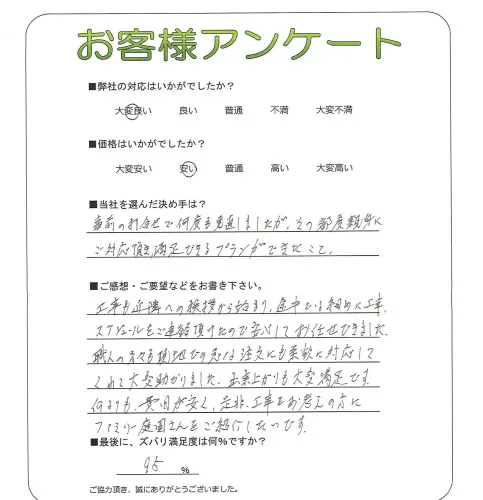 お客様アンケート
■弊社の対応はいかがでしたか？
大変良い 良い 普通 不満 大変不満
■価格はいかがでしたか？
大変安い 安い 普通 高い 大変高い
■当社を選んだ決め手は？
事前の打合せで何度も見直しましたが、その都度親身に
ご対応頂き満足できるプランができたこと。
■ご感想・ご要望などをお書き下さい。
工事も近隣への挨拶から始まり、途中では細めに工事
スケジュールをご連絡頂けたので安心してお任せできました。
職人の方々も現地での 注文にも柔軟に対応して
くれて大変助かりました。出来上がりも大変満足です。
何よりも、費用が安く、是非、工事をお考えの方に
ファミリー庭園さんをご紹介したいです。
■最後に、ズバリ満足度は何%ですか？
95 %
ご協力頂き、誠にありがとうございました。